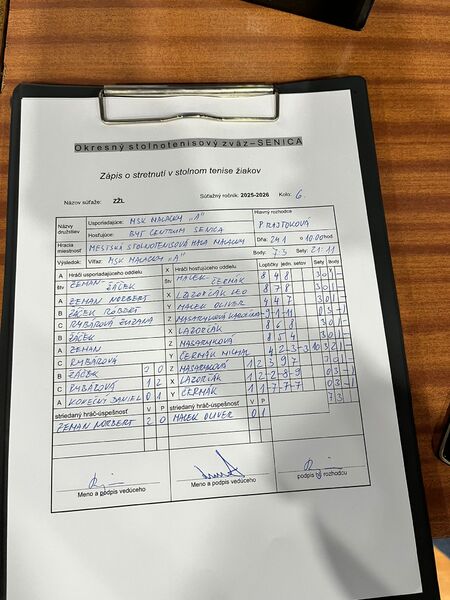 Okresný stolnotenisový zväz – SENICA
Zápis o stretnutí v stolnom tenise žiakov
Názov súťaže: ZŽL Súťažný ročník: 2025-2026 Kolo: 6.
Názvy družstiev Usporiadajúce: MSK MALACKY "A" Hlavný rozhodca
Hosťujúce: BYT CENTRUM SENICA P. RAJTOKOVÁ
Hracia miestnosť MESTSKÁ STOLNOTENISOVÁ HALA MALACKY Dňa: 24.1 o 10.00 hod.
Výsledok: Víťaz: MSK MALACKY "A" Body: 7:3 Sety: 21:11
A Hráči usporiadajúceho oddielu X Hráči hosťujúceho oddielu Loptičky jedn. setov Sety Body
štv ZEMAN ŽÁČEK štv MALEK ČERMÁK 8 4 8 3 0 1 -
A ZEMAN NORBERT X LAZORČÁK LEO 8 7 8 3 0 1 -
B ŽÁČEK RÓBERT Y MALEK OLIVER 4 4 7 3 0 1 -
C RYBÁROVÁ ZUZANA Z MASARYKOVÁ KAROLÍNA -9 -11 -11 0 3 - 1
B ŽÁČEK X LAZORČÁK 8 6 8 3 0 1 -
A ZEMAN Z MASARYKOVÁ 8 5 4 3 0 1 -
C RYBÁROVÁ Y ČERMÁK 4 2 -3 -3 10 3 2 1 -
B ŽÁČEK 2 0 Z MASARYKOVÁ 1 2 3 9 7
C RYBÁROVÁ 1 2 X LAZORČÁK 1 2 -2 -8 -9 0 3 - 1
A KONEČNÝ DANIEL 0 1 Y ČERMÁK 1 1 -7 -7 -7 0 3 - 1
striedaný hráč-úspešnosť V P striedaný hráč-úspešnosť V P 7 3
ZEMAN NORBERT 2 0 MALEK OLIVER 0 1
Meno a podpis vedúceho Meno a podpis vedúceho podpis hl. rozhodcu